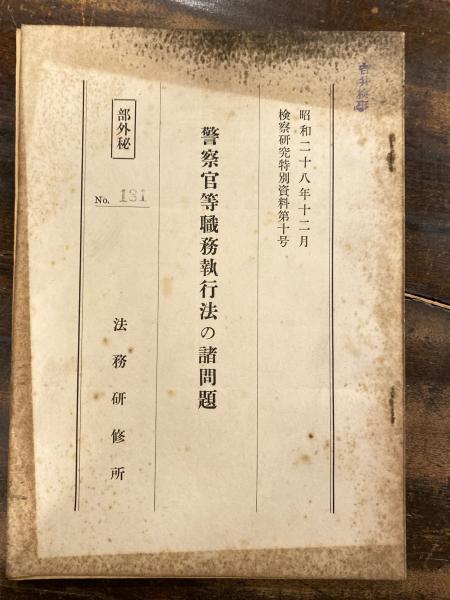 昭和二十八年十二月
検察研究特別資料第十号
警察官等職務執行法の諸問題
部外秘
No. 131
法務研修所